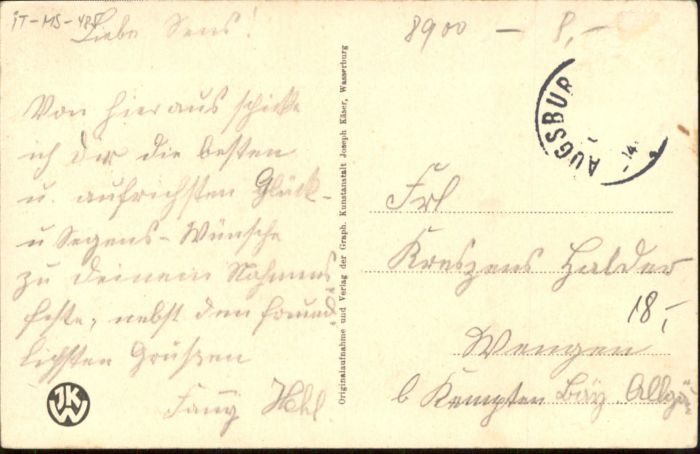 iT-MS-485
Liebe Sens!
Von hier aus schicke
ich dir die besten
u. aufrichsten Glück-
u Segens-Wünsche
zu deinem Nahmens
feste, nebst den freund
lichsten Grüßen
Fanny
JKW
Originalaufnahme und Verlag der Graph. Kunstanstalt Joseph Käser, Wasserburg
8900 - 8,-
AUGSBUR
14
Frl
Kreszens Halder
18,-
Wengen
b Kempten Bay. Allgä